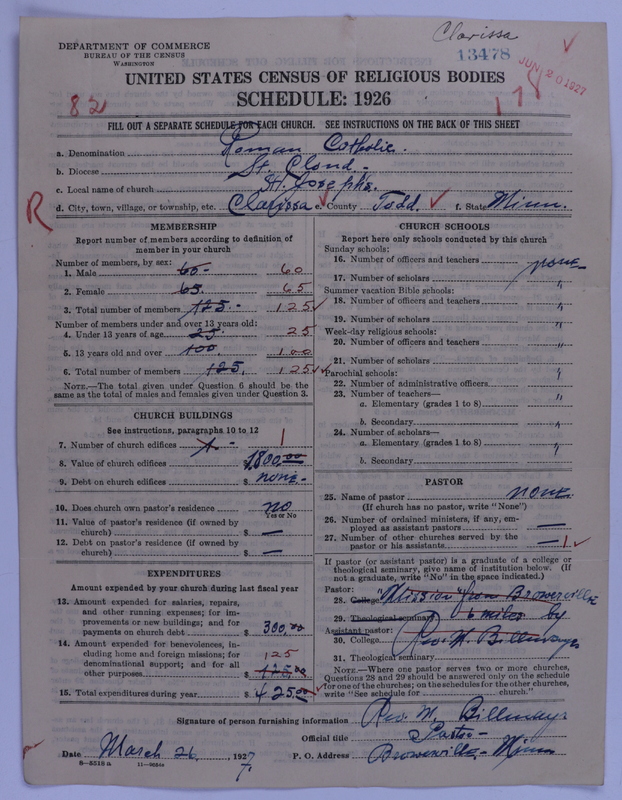 Clarissa
DEPARTMENT OF COMMERCE
BUREAU OF THE CENSUS
WASHINGTON
13478
JUN 20 1927
UNITED STATES CENSUS OF RELIGIOUS BODIES
82
SCHEDULE: 1926
178
FILL OUT A SEPARATE SCHEDULE FOR EACH CHURCH. SEE INSTRUCTIONS ON THE BACK OF THIS SHEET
a. Denomination Roman Catholic.
b. Diocese St. Cloud.
c. Local name of church St. Joseph's.
R
d. City, town, village, or township, etc. Clarissa e. County Todd. f. State Minn.
MEMBERSHIP
Report number of members according to definition of
member in your church
Number of members, by sex:
1. Male 60- 60
2. Female 65. 65
3. Total number of members 125.- 125
Number of members under and over 13 years old:
4. Under 13 years of age 25. 25
5. 13 years old and over 100. 100
6. Total number of members 125. 125
NOTE.—The total given under Question 6 should be the
same as the total of males and females given under Question 3.
CHURCH BUILDINGS
See instructions, paragraphs 10 to 12
7. Number of church edifices 1- 1
8. Value of church edifices $ 1800.00
9. Debt on church edifices $ none-
10. Does church own pastor's residence no
Yes or No
11. Value of pastor's residence (if owned by
church) $ —
12. Debt on pastor's residence (if owned by
church) $ —
EXPENDITURES
Amount expended by your church during last fiscal year
13. Amount expended for salaries, repairs,
and other running expenses; for im-
provements or new buildings; and for
payments on church debt $ 300.00
14. Amount expended for benevolences, in-
cluding home and foreign missions; for 125
denominational support; and for all
other purposes $ 125.00
15. Total expenditures during year $ 425.00
CHURCH SCHOOLS
Report here only schools conducted by this church
Sunday schools:
16. Number of officers and teachers none-
17. Number of scholars "
Summer vacation Bible schools:
18. Number of officers and teachers "
19. Number of scholars "
Week-day religious schools:
20. Number of officers and teachers "
21. Number of scholars "
Parochial schools:
22. Number of administrative officers "
23. Number of teachers—
a. Elementary (grades 1 to 8) "
b. Secondary "
24. Number of scholars—
a. Elementary (grades 1 to 8) "
b. Secondary "
PASTOR
25. Name of pastor none.
(If church has no pastor, write "None")
26. Number of ordained ministers, if any, em-
ployed as assistant pastors —
27. Number of other churches served by the
pastor or his assistants — 1
If pastor (or assistant pastor) is a graduate of a college or
theological seminary, give name of institution below. (If
not a graduate, write "No" in the space indicated.)
Pastor:
28. College Mission from Browerville
29. Theological seminary 6 miles by
Assistant pastor:
30. College Rev. M. Billmayr
31. Theological seminary
NOTE.—Where one pastor serves two or more churches,
Questions 28 and 29 should be answered only on the schedule
for one of the churches; on the schedules for the other churches,
write "See schedule for church."
Signature of person furnishing information Rev. M. Billmayr
Official title Pastor
Date March 26, 1927
7.
P. O. Address Browerville- Minn
8—5518 a